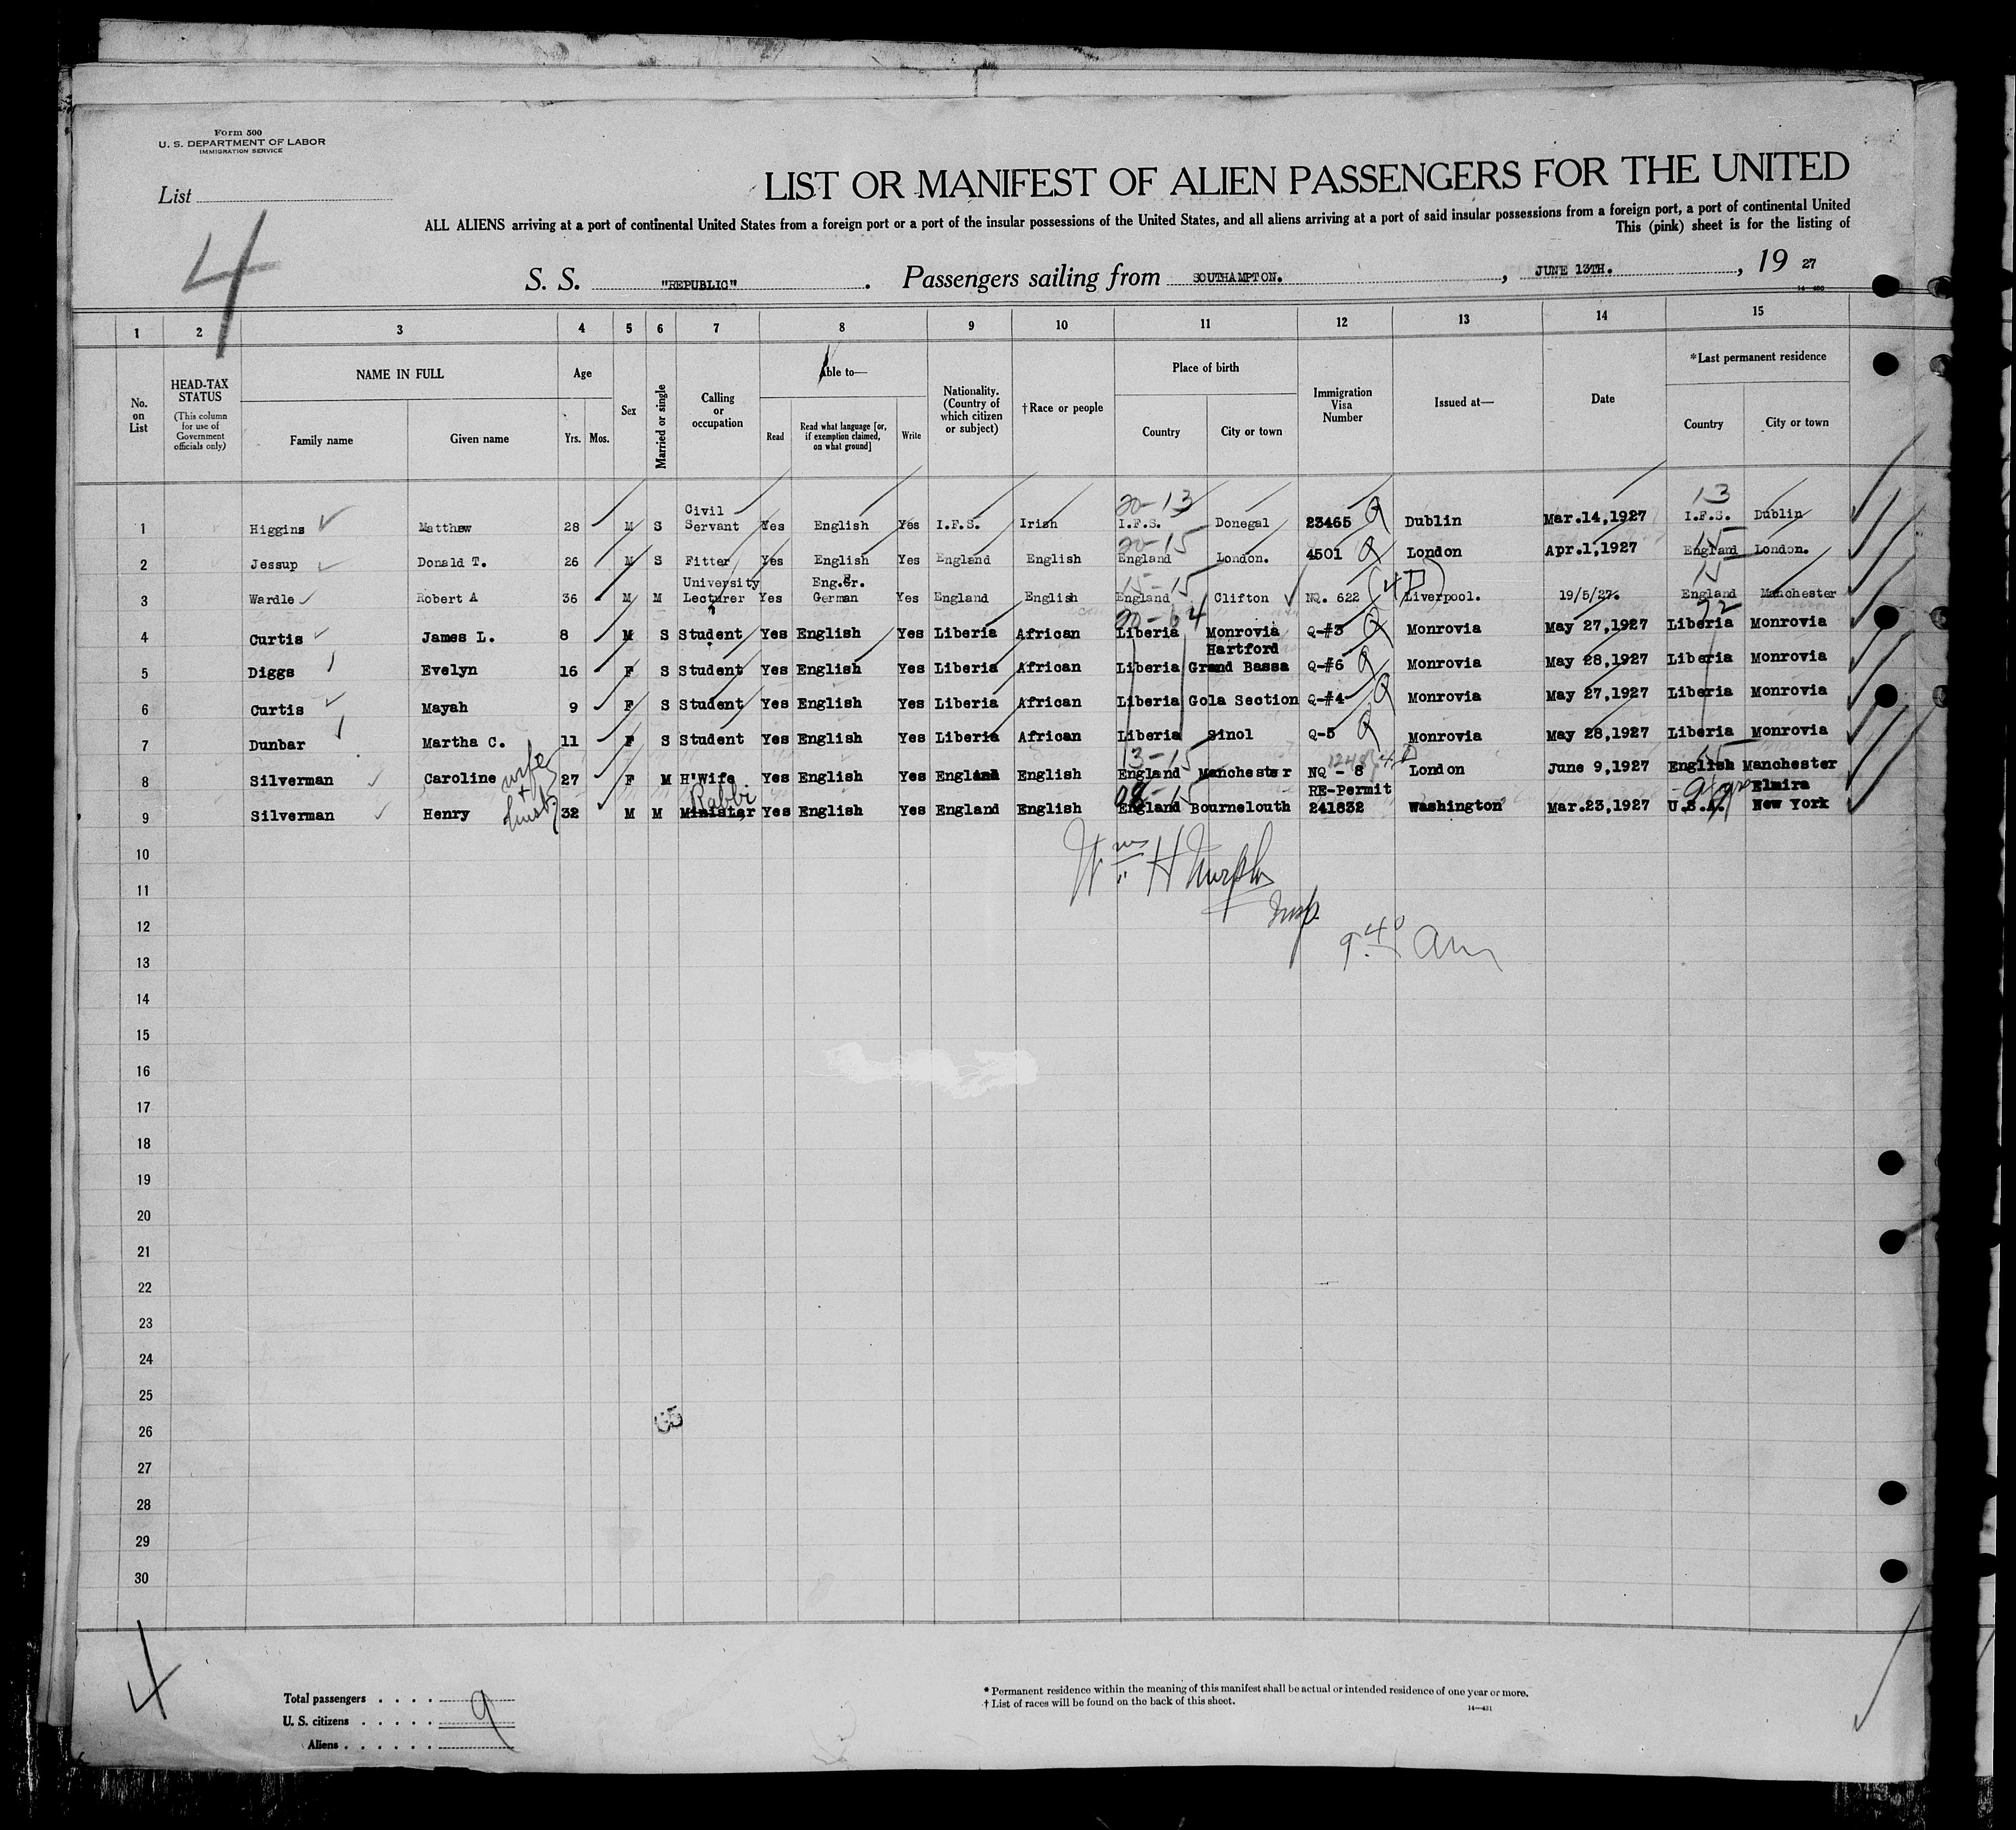 Form 500
U. S. DEPARTMENT OF LABOR
IMMIGRATION SERVICE
List
4
LIST OR MANIFEST OF ALIEN PASSENGERS FOR THE UNITED
ALL ALIENS arriving at a port of continental United States from a foreign port or a port of the insular possessions of the United States, and all aliens arriving at a port of said insular possessions from a foreign port, a port of continental United
This (pink) sheet is for the listing of
S. S. "REPUBLIC" . Passengers sailing from SOUTHAMPTON. , JUNE 13TH. , 19 27
1 2 3 4 5 6 7 8 9 10 11 12 13 14 15
No. on List
HEAD-TAX STATUS (This column for use of Government officials only)
NAME IN FULL
Family name Given name
Age
Yrs. Mos.
Sex
Married or single
Calling or occupation
Able to—
Read
Read what language [or, if exemption claimed, on what ground]
Write
Nationality. (Country of which citizen or subject)
†Race or people
Place of birth
Country City or town
Immigration Visa Number
Issued at—
Date
*Last permanent residence
Country City or town
20-13 13
1 Higgins Matthew 28 M S Civil Servant Yes English Yes I.F.S. Irish I.F.S. Donegal 23465 Q Dublin Mar.14,1927 I.F.S. Dublin
20-15 15
2 Jessup Donald T. 26 M S Fitter Yes English Yes England English England London. 4501 Q London Apr.1,1927 England London.
15-15 15
3 Wardle Robert A 36 M M University Lecturer Yes Eng.&Gr. German Yes England English England Clifton NQ. 622 (4D) Liverpool. 19/5/27. England Manchester
20-64 92
4 Curtis James L. 8 M S Student Yes English Yes Liberia African Liberia Monrovia Q-#3 Q Monrovia May 27,1927 Liberia Monrovia
5 Diggs Evelyn 16 F S Student Yes English Yes Liberia African Liberia Hartford Grand Bassa Q-#6 Q Monrovia May 28,1927 Liberia Monrovia
6 Curtis Mayah 9 F S Student Yes English Yes Liberia African Liberia Gola Section Q-#4 Q Monrovia May 27,1927 Liberia Monrovia
7 Dunbar Martha C. 11 F S Student Yes English Yes Liberia African Liberia Sinol Q-5 Q Monrovia May 28,1927 Liberia Monrovia
13-15 1248 4D 15
8 Silverman Caroline wife + 27 F M H'Wife Yes English Yes England English England Manchester NQ - 8 London June 9,1927 English Manchester
9 Silverman Henry husb 32 M M Rabbi Minister Yes English Yes England English England Bournelouth RE-Permit 241832 Washington Mar.23,1927 U.S.A. Elmira New York
10
Wms H Murphy
11
Insp.
12
9.40 am
13
14
15
16
17
18
19
20
21
22
23
24
25
26
27
28
29
30
4
Total passengers . . . .
U. S. citizens . . . . . 9
Aliens . . . . . .
* Permanent residence within the meaning of this manifest shall be actual or intended residence of one year or more.
† List of races will be found on the back of this sheet.
14—431